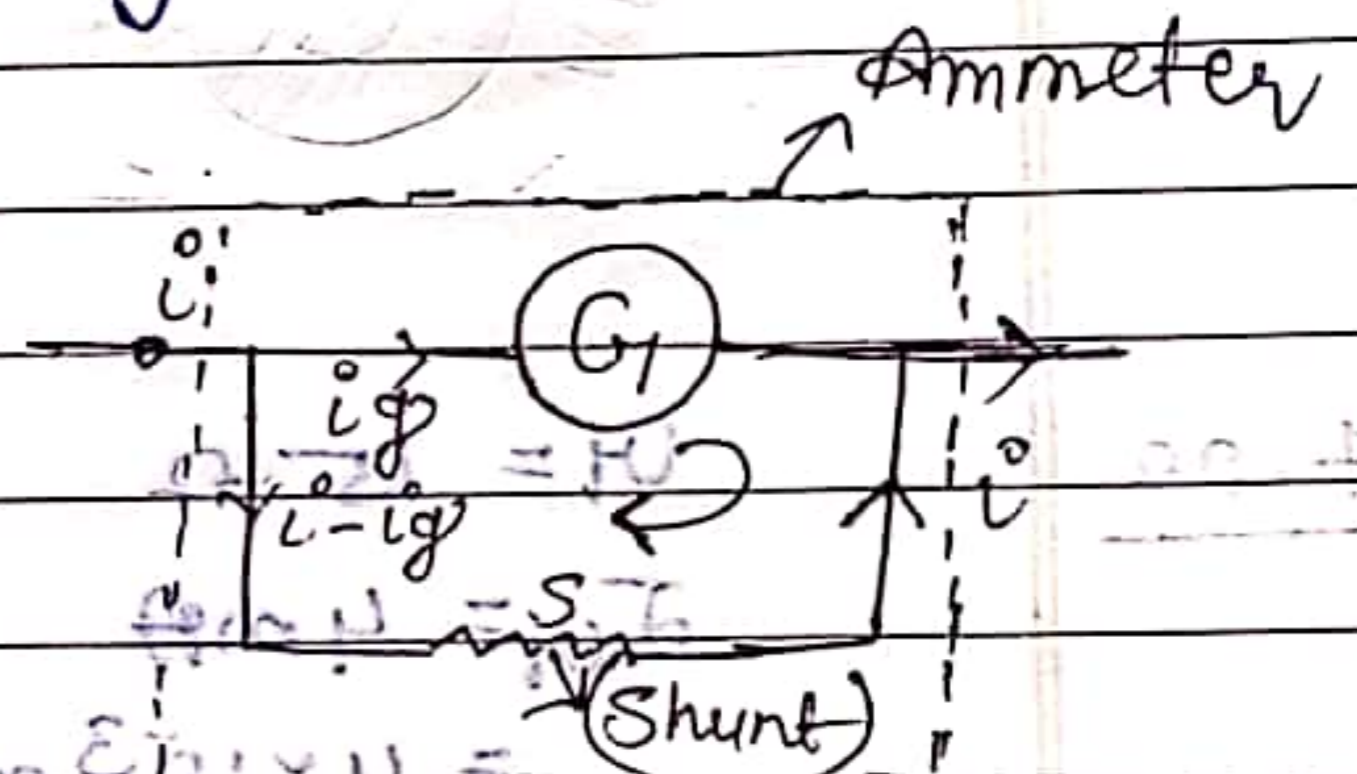 Ammeter
i
G
ig
i
i-ig
S
(Shunt)